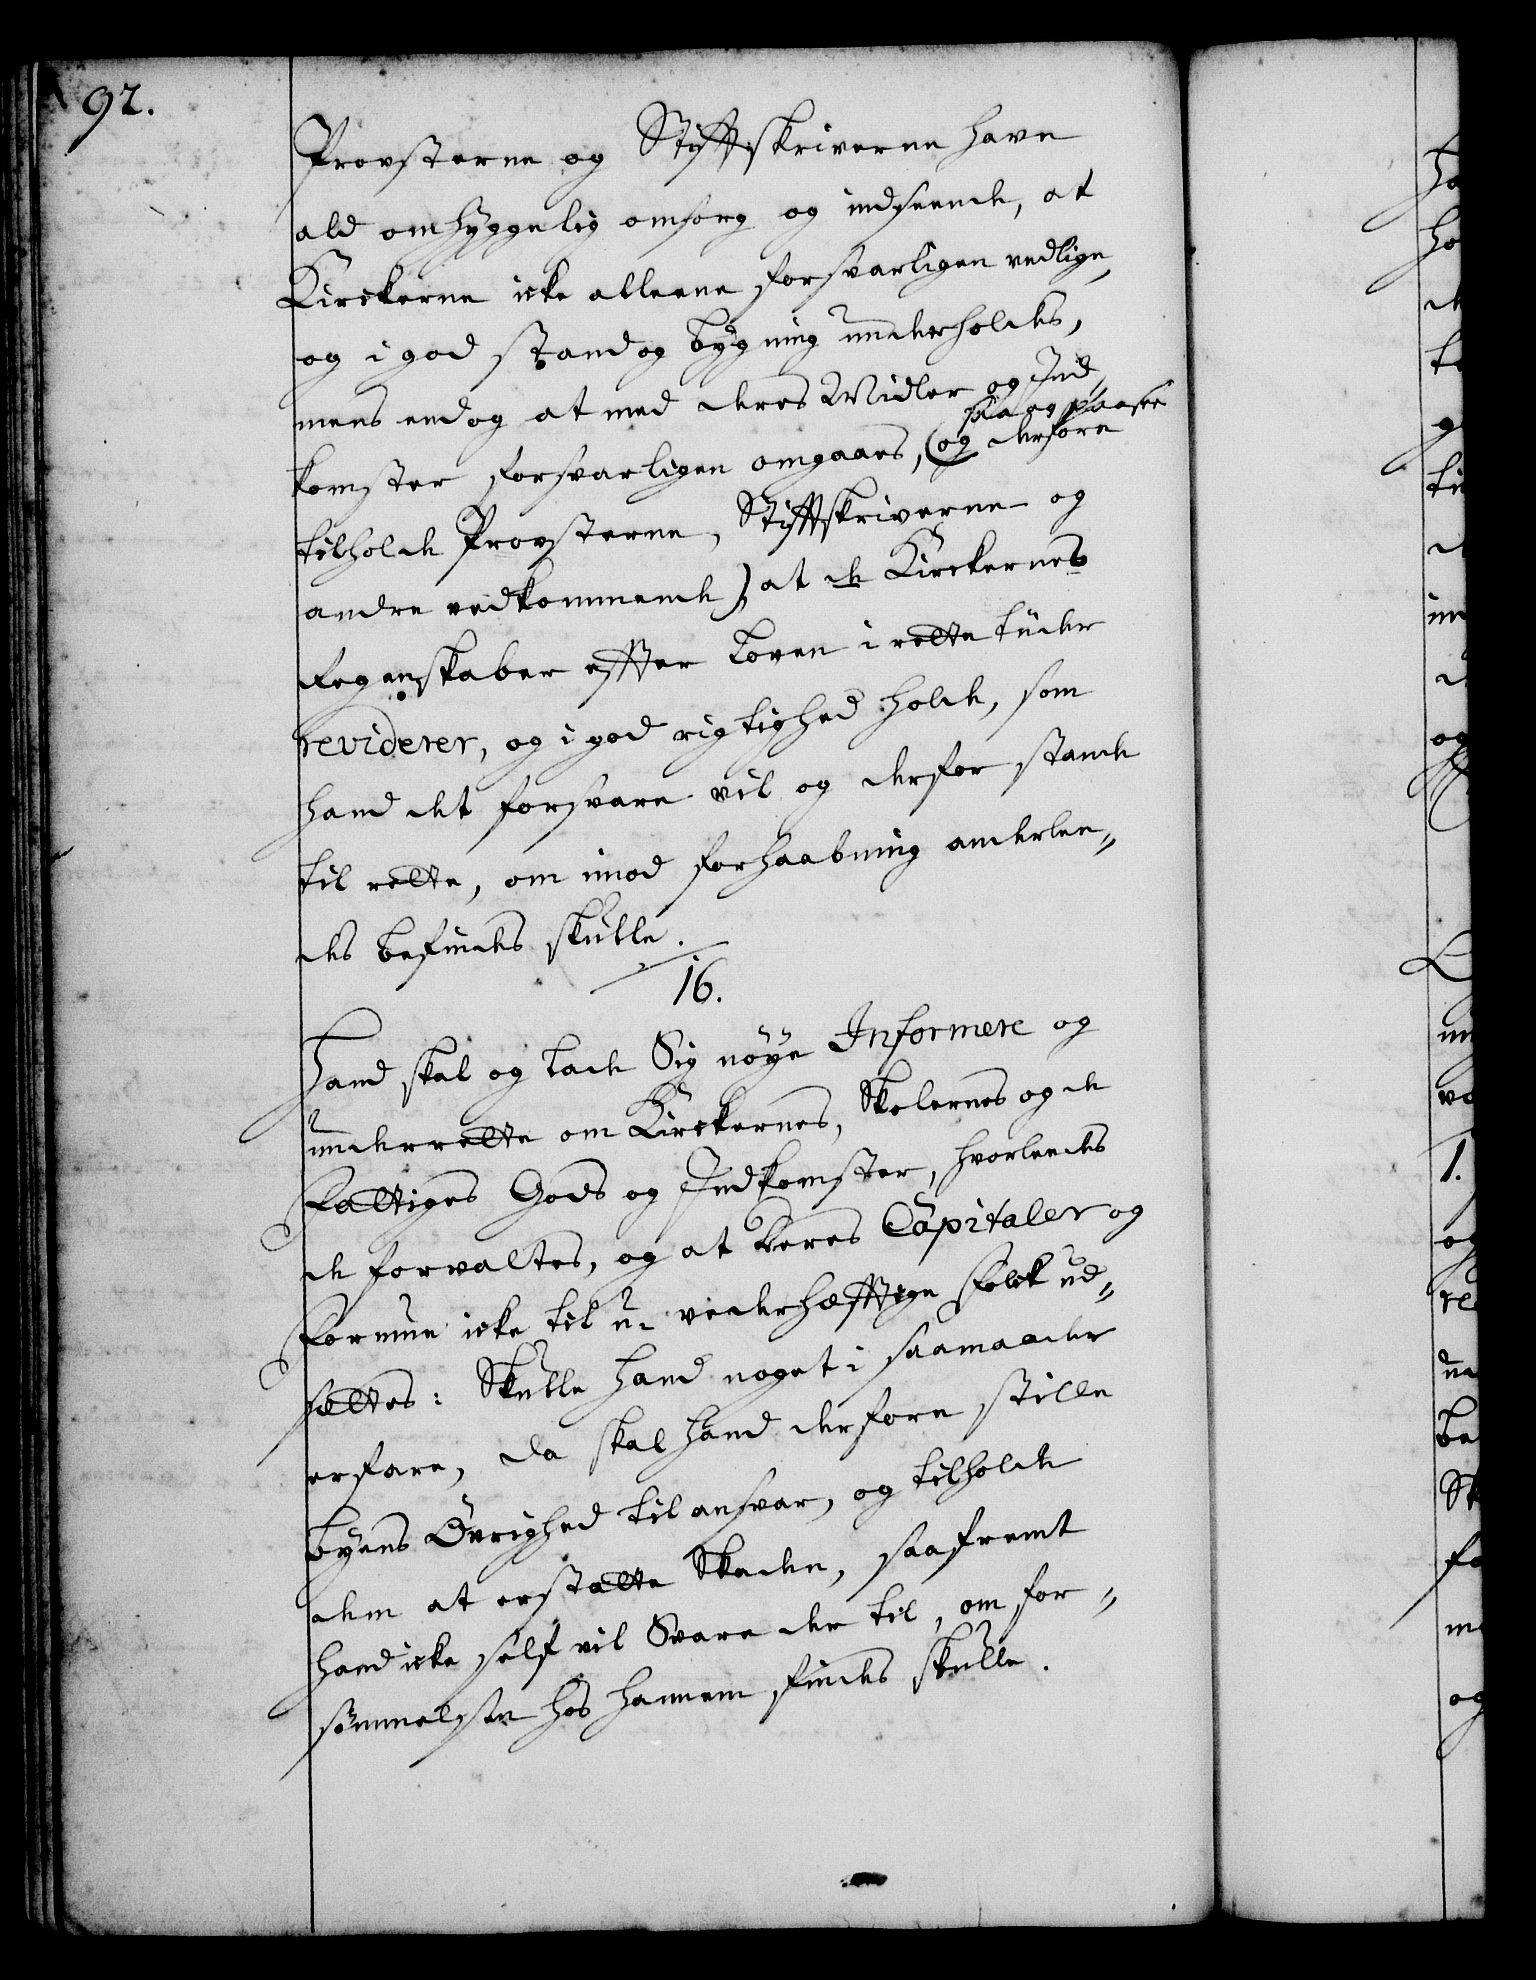 92.
Provsterne og Stiftskriverne have
ald omhyggelig omsorg og indseende, at
Kirckerne icke alleene forsvarligen vedlige,
og i god stand og bygning underholdes,
mens endog at med deres Midler og Ind¬
saa og paasee
komster forsvarligen omgaaes, (og derfore
tilholde Provsterne, Stiftskriverne og
andre vedkommende) at de Kirckernes
Regenskaber efter Loven i rette tiider
reviderer, og i god rigtighed holde, som
hand det forsvare vil og derfor stande
til rette, om imod forhaabning anderlee¬
des befindes skulle.
16.
Hand skal og lade Sig nöye Informere og
underrette om Kirckernes, Skolernes og de
Fattiges Gods og Indkomster, hvorleedes
de forvaltes, og at deres Capitaler og
Formue icke til u-vederhæfftige Folck ud¬
settes: Skulle hand noget i saamaader
erfare, da skal hand derfore stille
byens Övrighed til ansvar, og tilholde
dem at erstatte Skaden, saafremt
hand icke self vil Svare der til, om for¬
sömmelsen hos hannem findes skulle.